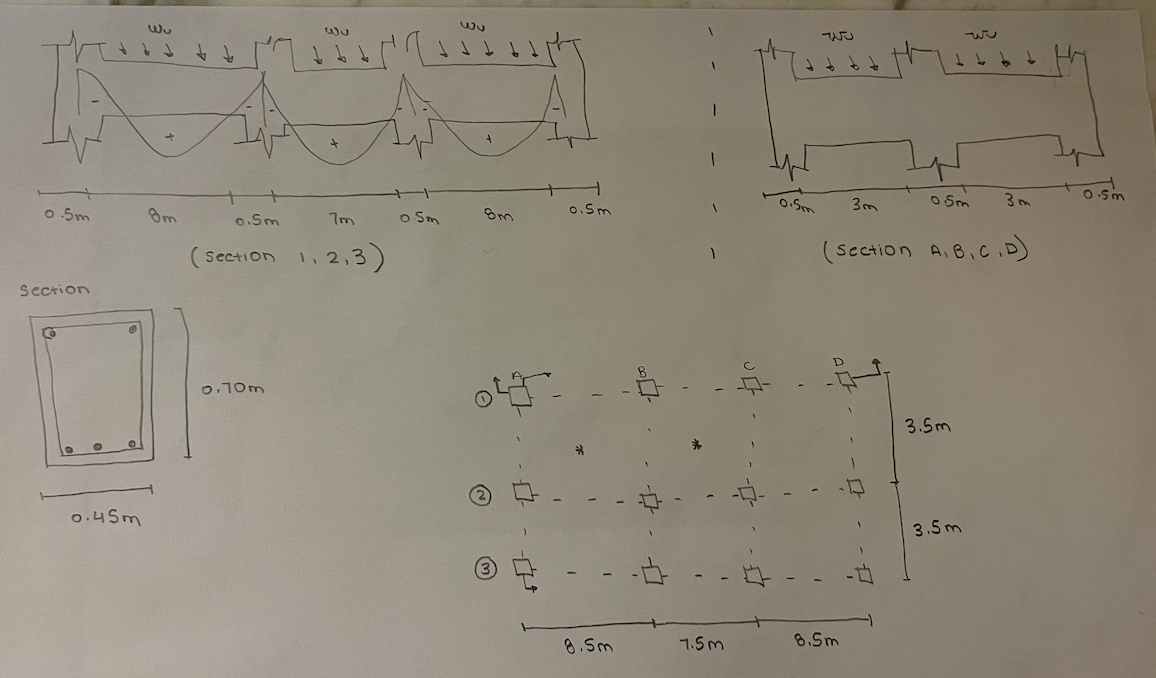 wu wu wu
wu wu
0.5m 8m 0.5m 7m 0.5m 8m 0.5m
(Section 1, 2, 3)
0.5m 3m 0.5m 3m 0.5m
(Section A, B, C, D)
Section
0.70m
0.45m
A B C D
1
2
3
3.5m
3.5m
8.5m 7.5m 8.5m